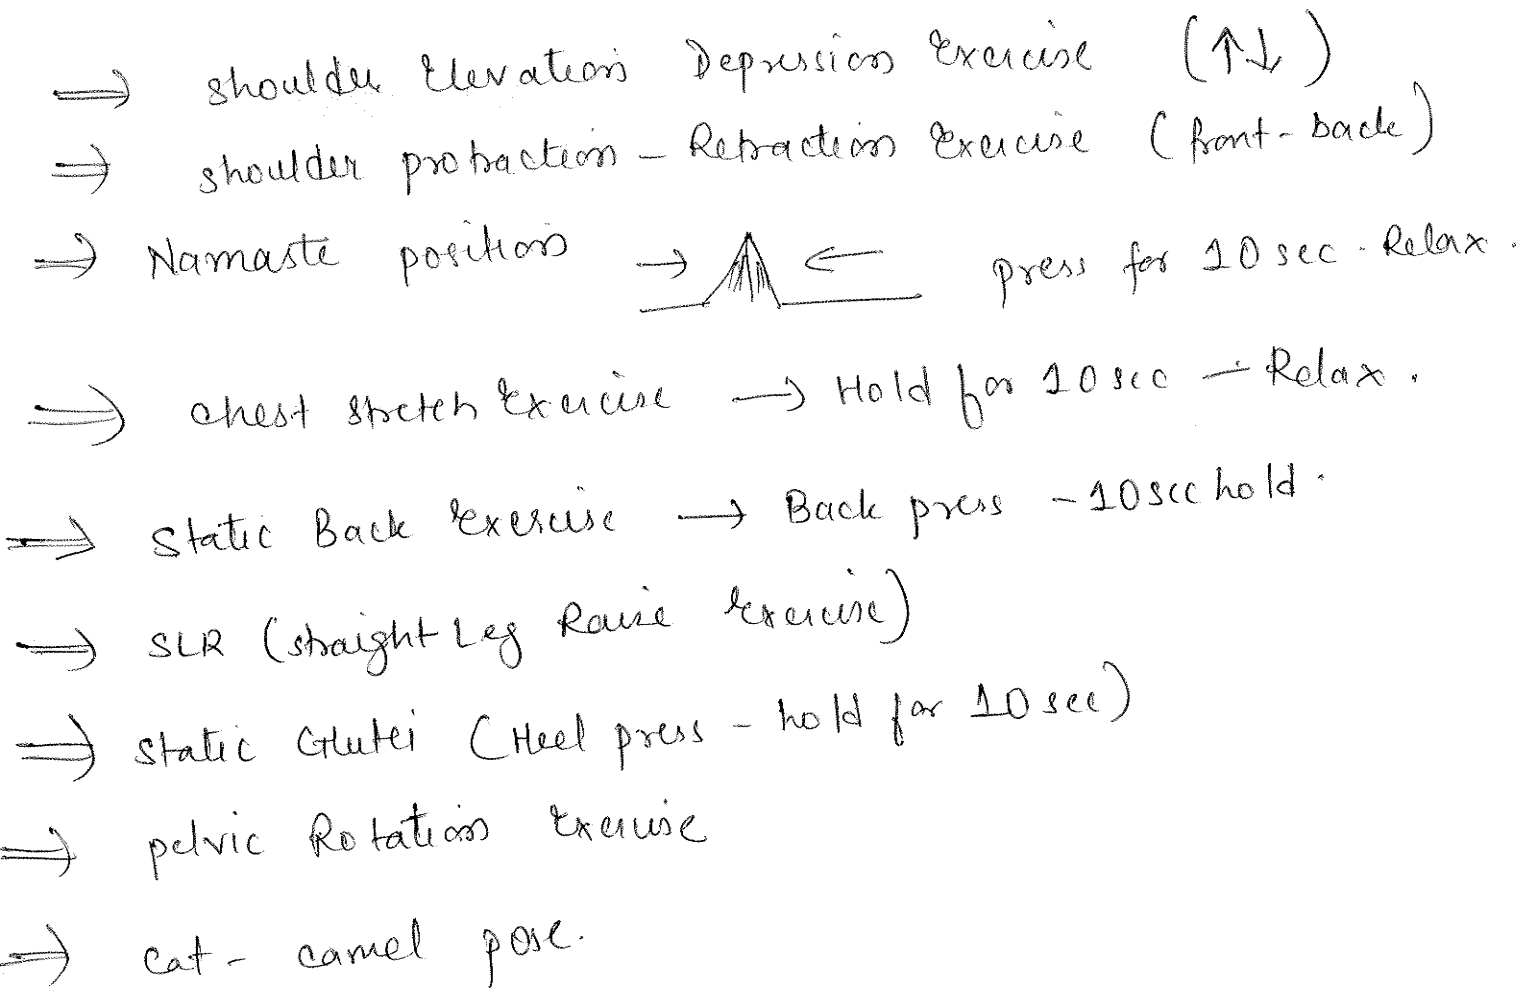 ⇒ shoulder Elevation Depression Exercise (↑↓)
⇒ shoulder protraction - Retraction Exercise (front-back)
⇒ Namaste position → ← press for 10 sec. Relax.
⇒ chest stretch Exercise → Hold for 10 sec - Relax.
⇒ Static Back Exercise → Back press - 10 sec hold.
⇒ SLR (straight Leg Raise Exercise)
⇒ static Glutei (Heel press - hold for 10 sec)
⇒ pelvic Rotation Exercise
⇒ cat - camel pose.